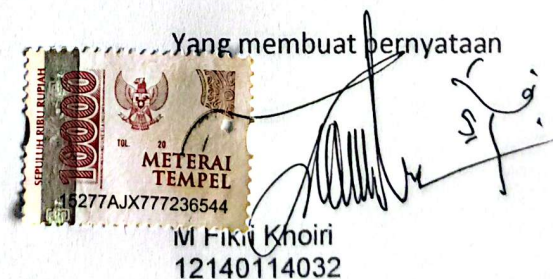 Yang membuat pernyataan
SEPULUH RIBU RUPIAH
10000
TGL. 20
METERAI
TEMPEL
15277AJX777236544
M Fikri Khoiri
12140114032